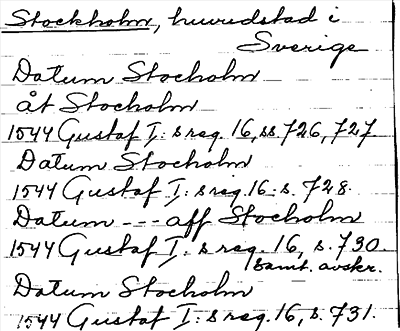 Stockholm, huvudstad i
Sverige
Datum Stocholm
åt Stocholm
1544 Gustaf I: s reg. 16, ss 726, 727
Datum Stocholm
1544 Gustaf I: s reg. 16. s. 728.
Datum --- aff Stocholm
1544 Gustaf I: s reg. 16, s. 730.
samt. avskr.
Datum Stocholm
1544 Gustaf I: s reg. 16, s. 731.